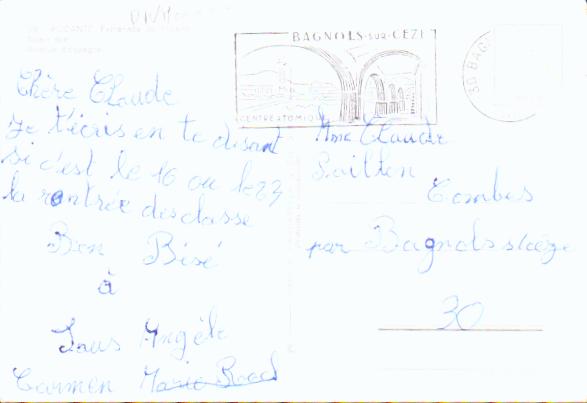 ALICANTE
BAGNOLS-SUR-CEZE
CENTRE ATOMIQUE
30 BAGN
Chère Claude
Je t'écris en te disant
si c'est le 16 ou le 23
la rentrée des classe
Bon Bisé
à
Tous Angèle
Carmen Marie
Mme Claude
Combes
par Bagnols s/cèze
30